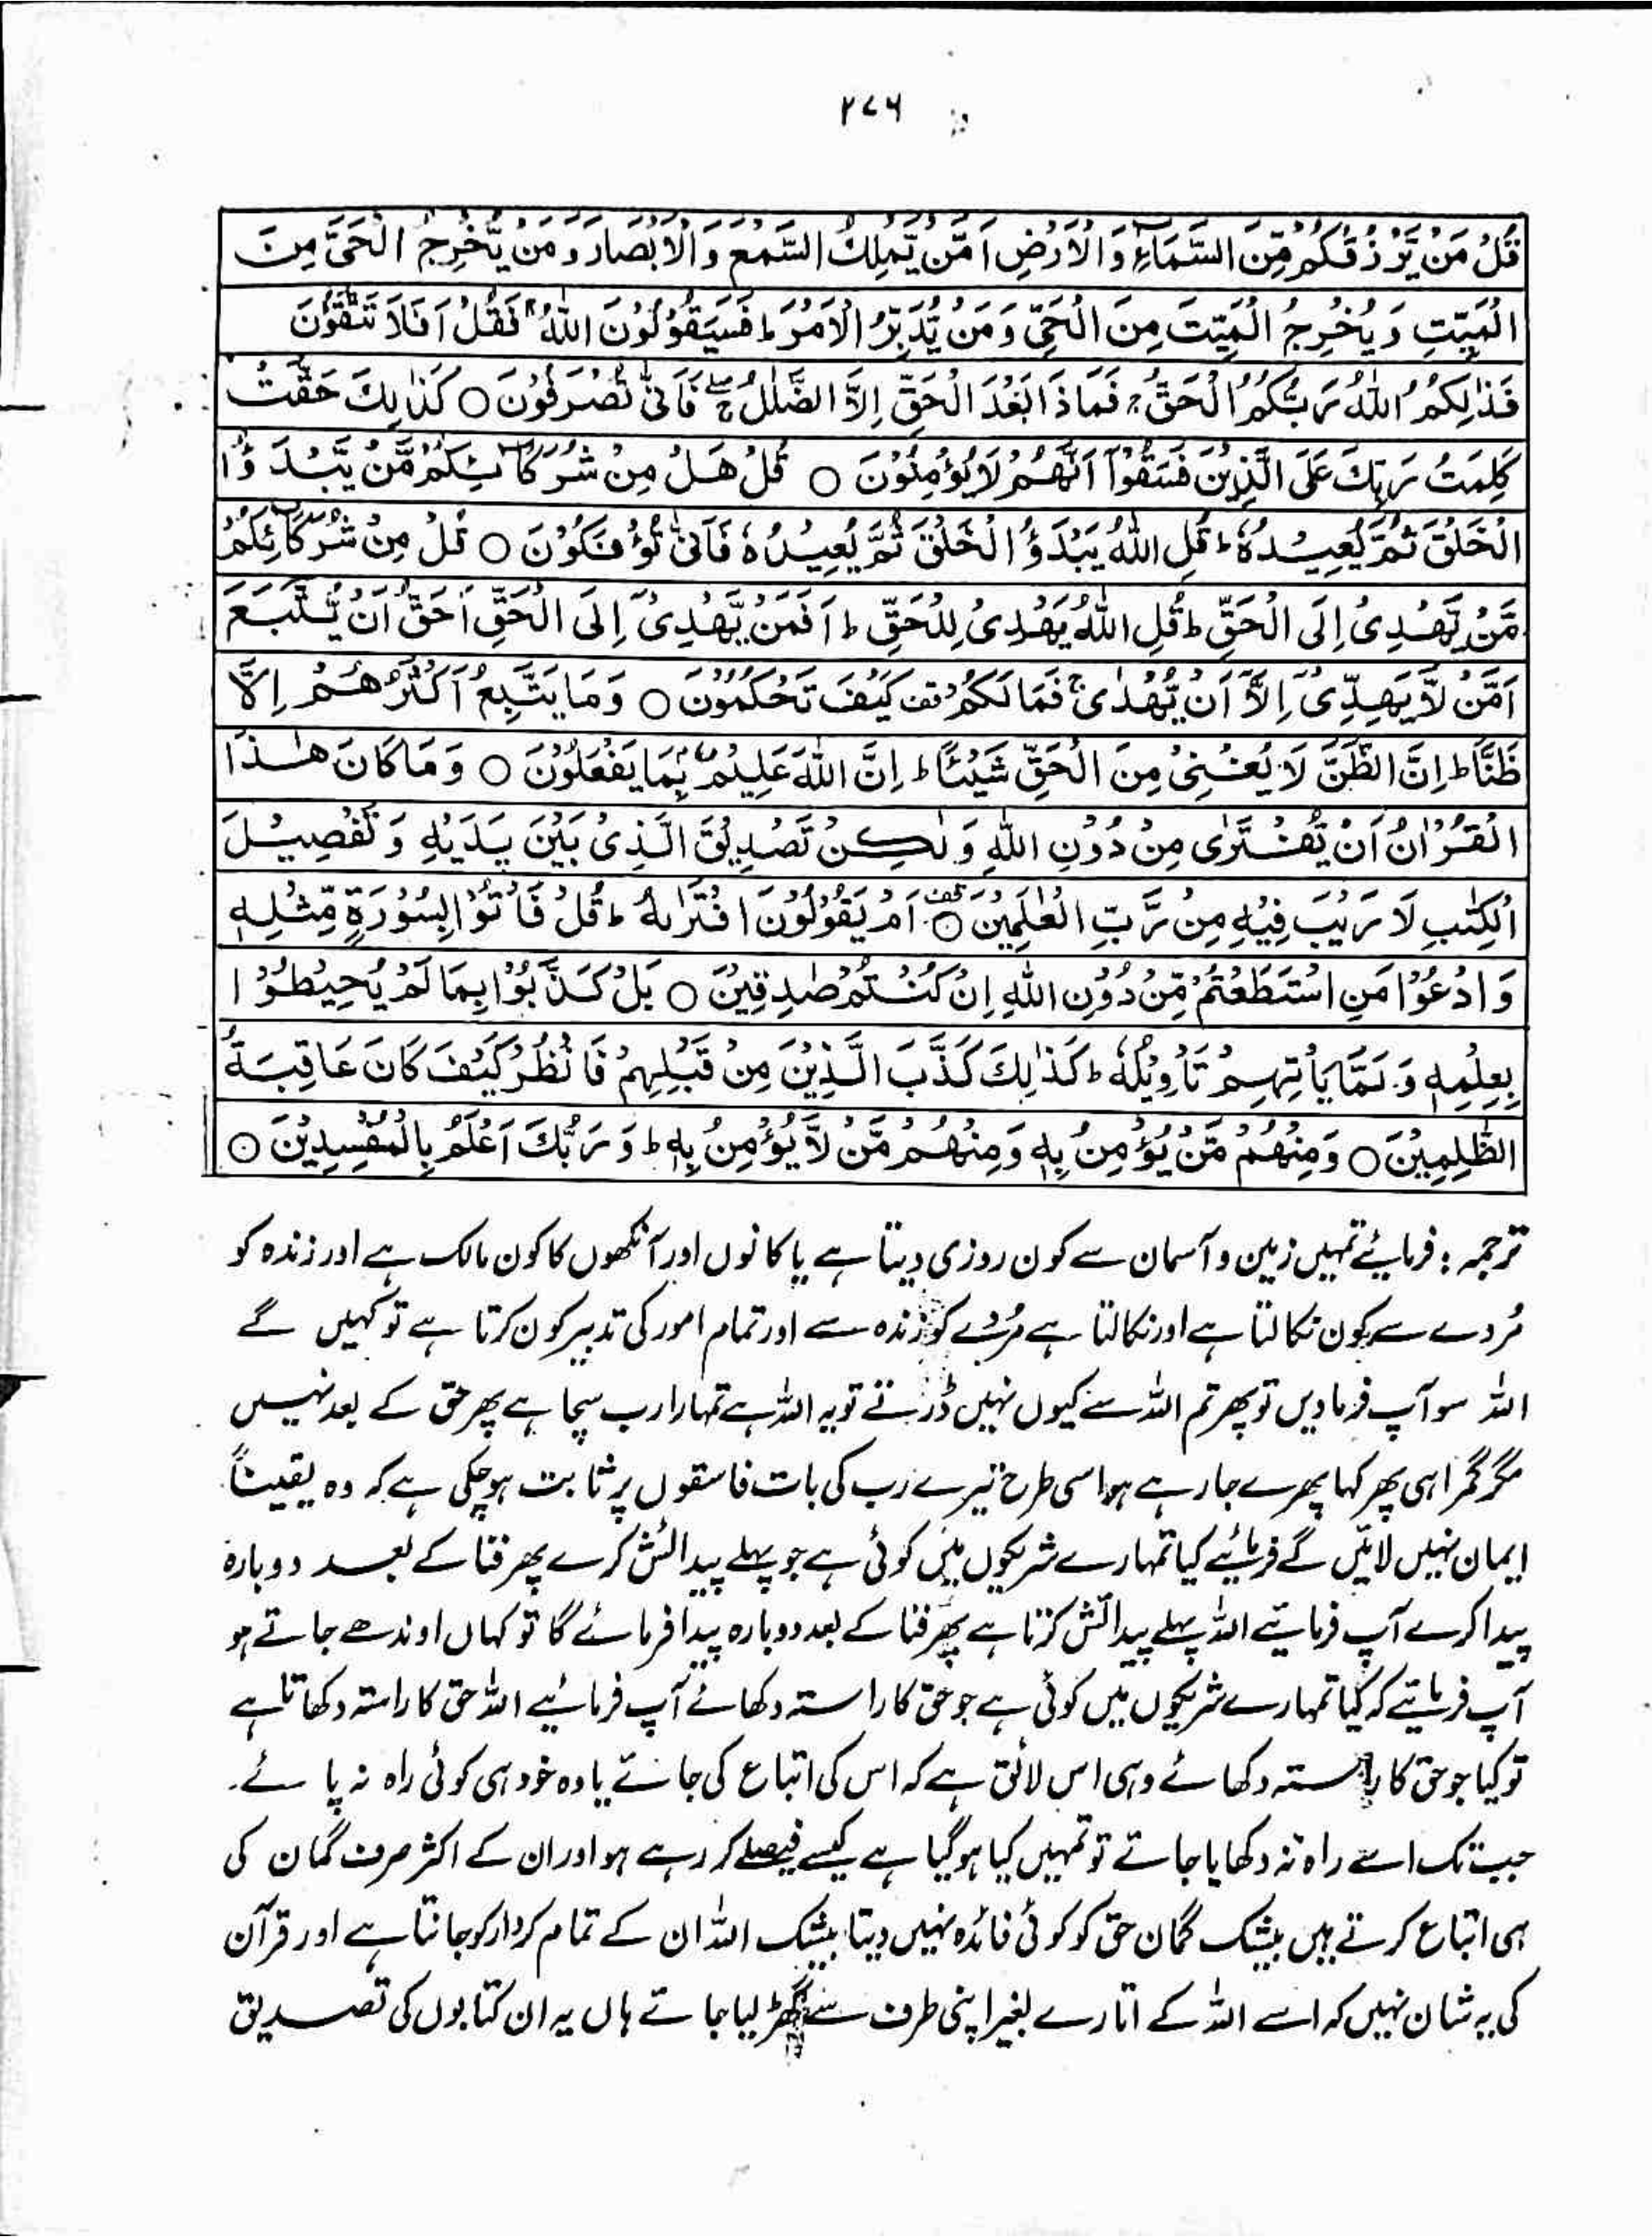 ۲۷۶
قُلْ مَنْ يَّرْزُقُكُمْ مِّنَ السَّمَآءِ وَالْاَرْضِ اَمَّنْ يَّمْلِكُ السَّمْعَ وَالْاَبْصَارَ وَمَنْ يُّخْرِجُ الْحَىَّ مِنَ
الْمَيِّتِ وَيُخْرِجُ الْمَيِّتَ مِنَ الْحَيِّ وَمَنْ يُّدَبِّرُ الْاَمْرَ ط فَسَيَقُوْلُوْنَ اللّٰهُ ج فَقُلْ اَفَلَا تَتَّقُوْنَ
فَذٰلِكُمُ اللّٰهُ رَبُّكُمُ الْحَقُّ ج فَمَاذَا بَعْدَ الْحَقِّ اِلَّا الضَّلٰلُ ج فَاَنّٰى تُصْرَفُوْنَ ○ كَذٰلِكَ حَقَّتْ
كَلِمَتُ رَبِّكَ عَلَى الَّذِيْنَ فَسَقُوْٓا اَنَّهُمْ لَا يُؤْمِنُوْنَ ○ قُلْ هَلْ مِنْ شُرَكَآئِكُمْ مَّنْ يَّبْدَؤُا
الْخَلْقَ ثُمَّ يُعِيْدُهٗ ط قُلِ اللّٰهُ يَبْدَؤُا الْخَلْقَ ثُمَّ يُعِيْدُهٗ فَاَنّٰى تُؤْفَكُوْنَ ○ قُلْ مِنْ شُرَكَآئِكُمْ
مَّنْ يَّهْدِىْ اِلَى الْحَقِّ ط قُلِ اللّٰهُ يَهْدِىْ لِلْحَقِّ ط اَفَمَنْ يَّهْدِىْٓ اِلَى الْحَقِّ اَحَقُّ اَنْ يُّتَّبَعَ
اَمَّنْ لَّا يَهِدِّىْٓ اِلَّآ اَنْ يُّهْدٰى ج فَمَا لَكُمْ قف كَيْفَ تَحْكُمُوْنَ ○ وَمَا يَتَّبِعُ اَكْثَرُهُمْ اِلَّا
ظَنًّا ط اِنَّ الظَّنَّ لَا يُغْنِىْ مِنَ الْحَقِّ شَيْئًا ط اِنَّ اللّٰهَ عَلِيْمٌۢ بِمَا يَفْعَلُوْنَ ○ وَمَا كَانَ هٰذَا
الْقُرْاٰنُ اَنْ يُّفْتَرٰى مِنْ دُوْنِ اللّٰهِ وَلٰكِنْ تَصْدِيْقَ الَّذِىْ بَيْنَ يَدَيْهِ وَتَفْصِيْلَ
الْكِتٰبِ لَا رَيْبَ فِيْهِ مِنْ رَّبِّ الْعٰلَمِيْنَ ○ قف اَمْ يَقُوْلُوْنَ افْتَرٰىهُ ط قُلْ فَاْتُوْا بِسُوْرَةٍ مِّثْلِهٖ
وَادْعُوْا مَنِ اسْتَطَعْتُمْ مِّنْ دُوْنِ اللّٰهِ اِنْ كُنْتُمْ صٰدِقِيْنَ ○ بَلْ كَذَّبُوْا بِمَا لَمْ يُحِيْطُوْا
بِعِلْمِهٖ وَلَمَّا يَاْتِهِمْ تَاْوِيْلُهٗ ط كَذٰلِكَ كَذَّبَ الَّذِيْنَ مِنْ قَبْلِهِمْ فَانْظُرْ كَيْفَ كَانَ عَاقِبَةُ
الظّٰلِمِيْنَ ○ وَمِنْهُمْ مَّنْ يُّؤْمِنُ بِهٖ وَمِنْهُمْ مَّنْ لَّا يُؤْمِنُ بِهٖ ط وَرَبُّكَ اَعْلَمُ بِالْمُفْسِدِيْنَ ○
ترجمہ : فرمائیے تمہیں زمین و آسمان سے کون روزی دیتا ہے یا کانوں اور آنکھوں کا کون مالک ہے اور زندہ کو
مُردے سے کون نکالتا ہے اور نکالتا ہے مُردے کو زندہ سے اور تمام امور کی تدبیر کون کرتا ہے تو کہیں گے
اللہ سو آپ فرمادیں تو پھر تم اللہ سے کیوں نہیں ڈرتے تو یہ اللہ ہے تمہارا رب سچا ہے پھر حق کے بعد نہیں
مگر گمراہی پھر کہا پھرے جا رہے ہو اسی طرح تیرے رب کی بات فاسقوں پر ثابت ہو چکی ہے کہ وہ یقیناً
ایمان نہیں لائیں گے فرمائیے کیا تمہارے شریکوں میں کوئی ہے جو پہلے پیدائش کرے پھر فنا کے بعد دوبارہ
پیدا کرے آپ فرمائیے اللہ پہلے پیدائش کرتا ہے پھر فنا کے بعد دوبارہ پیدا فرمائے گا تو کہاں اوندھے جاتے ہو
آپ فرمائیے کہ کیا تمہارے شریکوں میں کوئی ہے جو حق کا راستہ دکھائے آپ فرمائیے اللہ حق کا راستہ دکھاتا ہے
تو کیا جو حق کا راستہ دکھائے وہی اس لائق ہے کہ اس کی اتباع کی جائے یا وہ خود ہی کوئی راہ نہ پائے۔
جب تک اسے راہ نہ دکھایا جائے تو تمہیں کیا ہو گیا ہے کیسے فیصلے کر رہے ہو اور ان کے اکثر صرف گمان کی
ہی اتباع کرتے ہیں بیشک گمان حق کو کوئی فائدہ نہیں دیتا بیشک اللہ ان کے تمام کردار کو جانتا ہے اور قرآن
کی یہ شان نہیں کہ اسے اللہ کے اتارے بغیر اپنی طرف سے گھڑ لیا جائے ہاں یہ ان کتابوں کی تصدیق